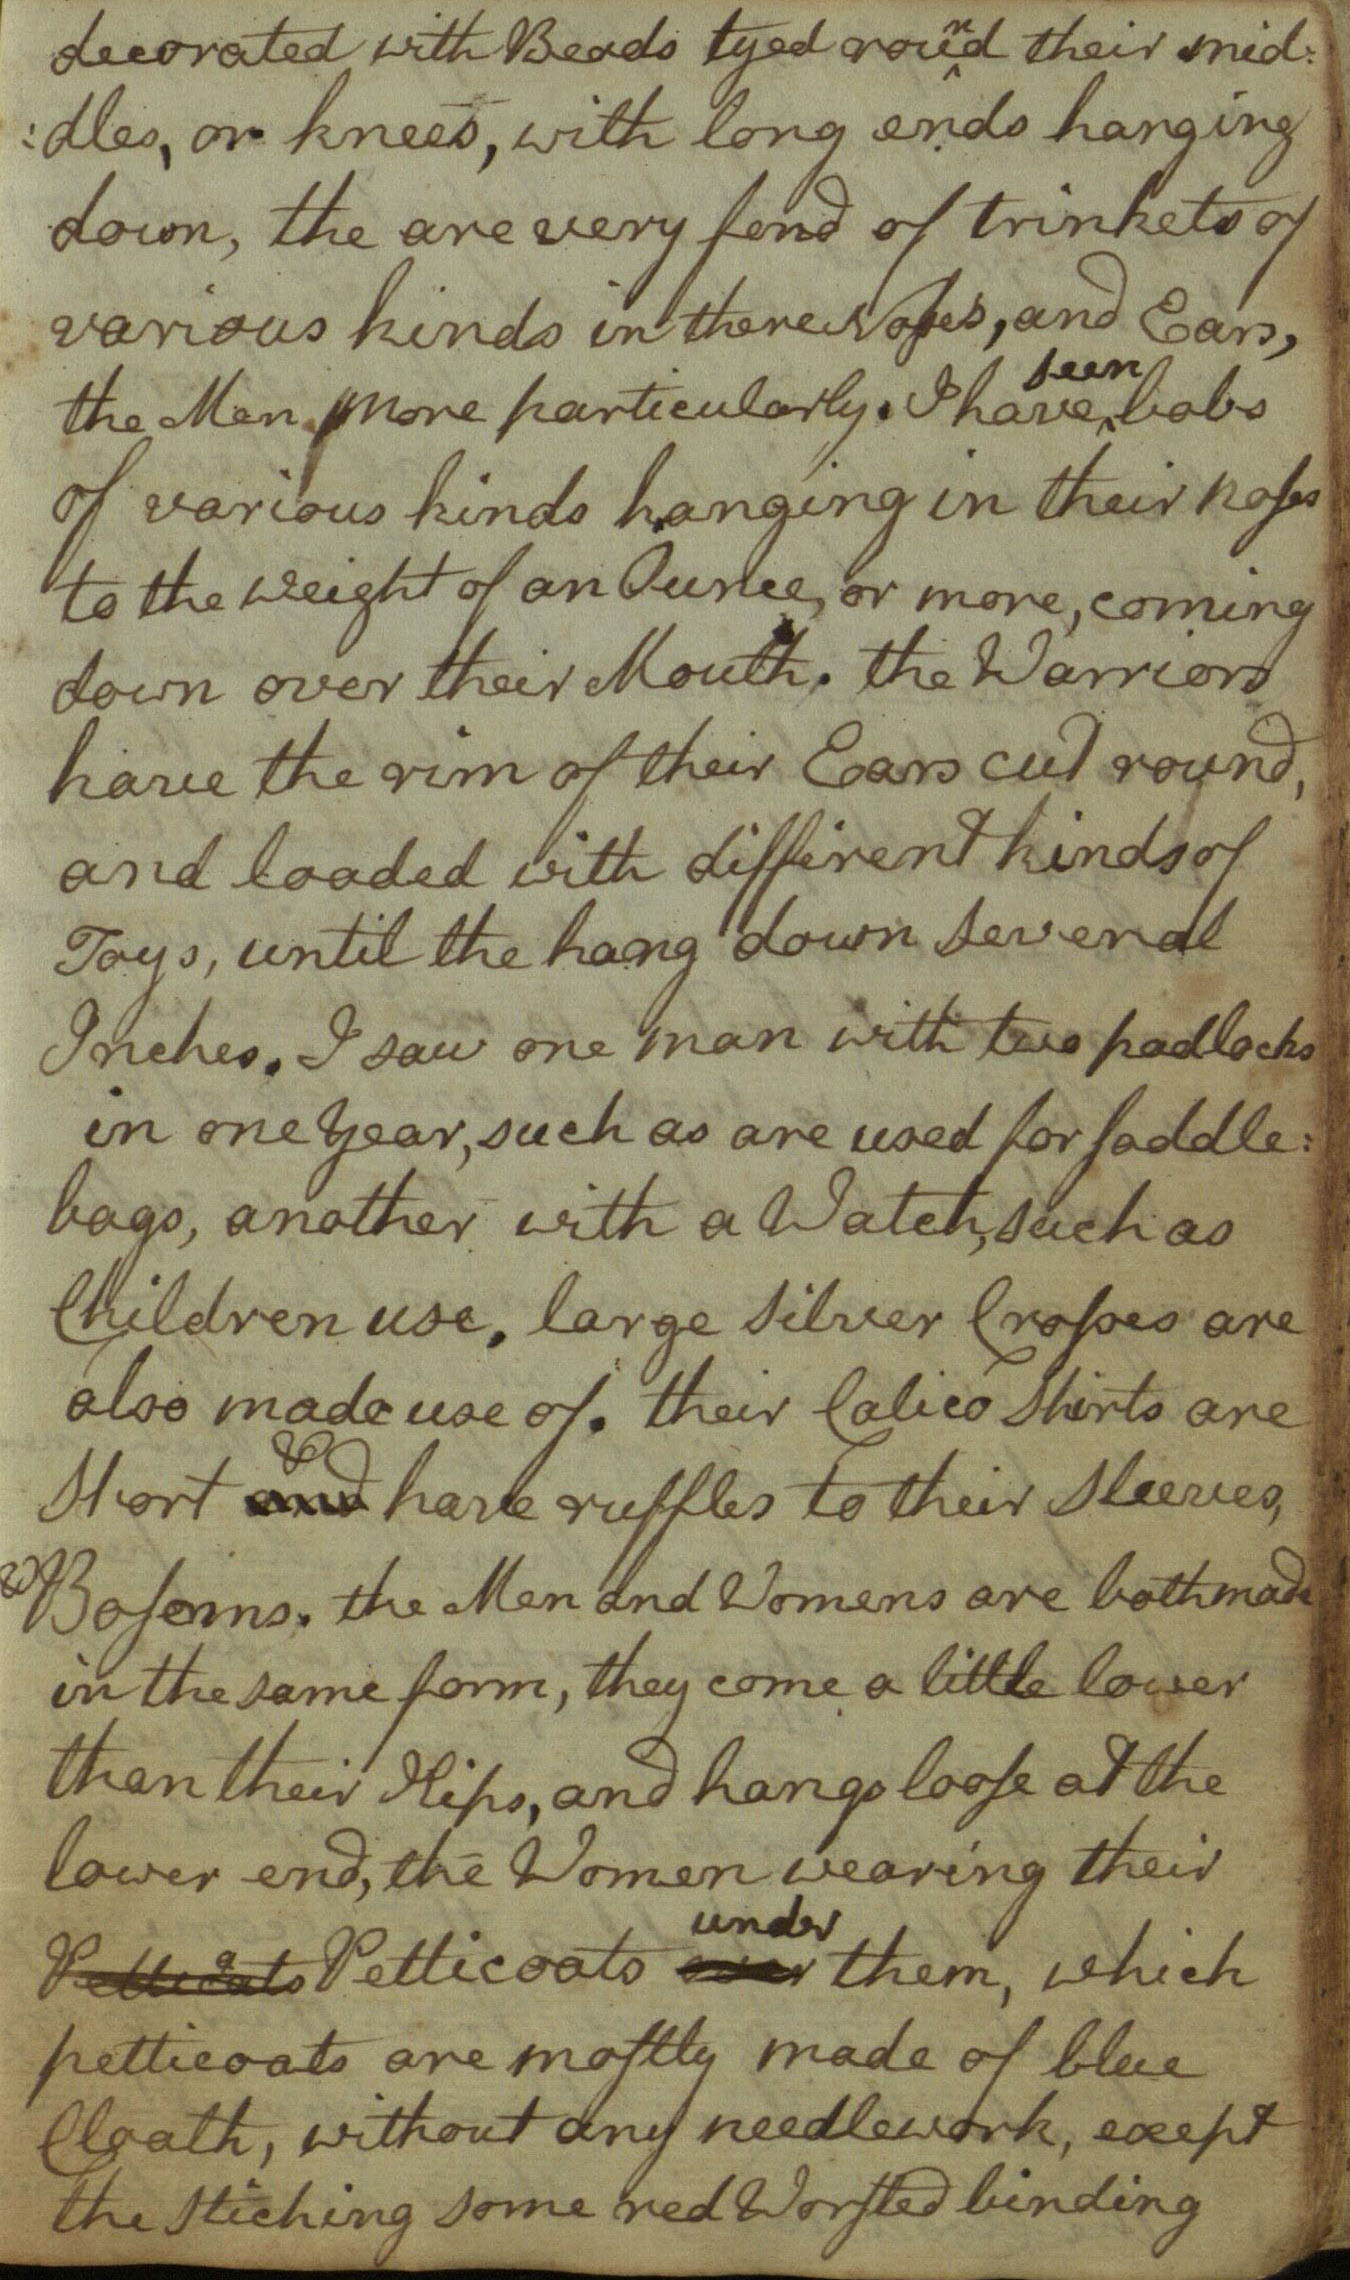 decorated with Beads tyed round their mid:
:dles, or knees, with long ends hanging
down, the are very fond of trinkets of
various kinds in there Noſes, and Ears,
the Men more particularly. I have seen bobs
of various kinds hanging in their noſes
to the weight of an Ounce, or more, coming
down over their Mouth. the Warriors
have the rim of their Ears cut round,
and loaded with different kinds of
Toys, until the hang down several
Inches. I saw one man with two padlocks
in one Year, such as are used for ſaddle:
bags, another with a Watch, such as
Children use. large silver Croſses are
also made use of. their Calico Shirts are
Short & have ruffles to their Sleeves,
& Boſoms. the Men and Womens are both made
in the same form, they come a little lower
than their Hips, and hangs looſe at the
lower end, the Women wearing their
Petticoats Petticoats under them, which
petticoats are moſtly made of blue
Cloath, without any needlework, exept
the stiching some red Worſted binding